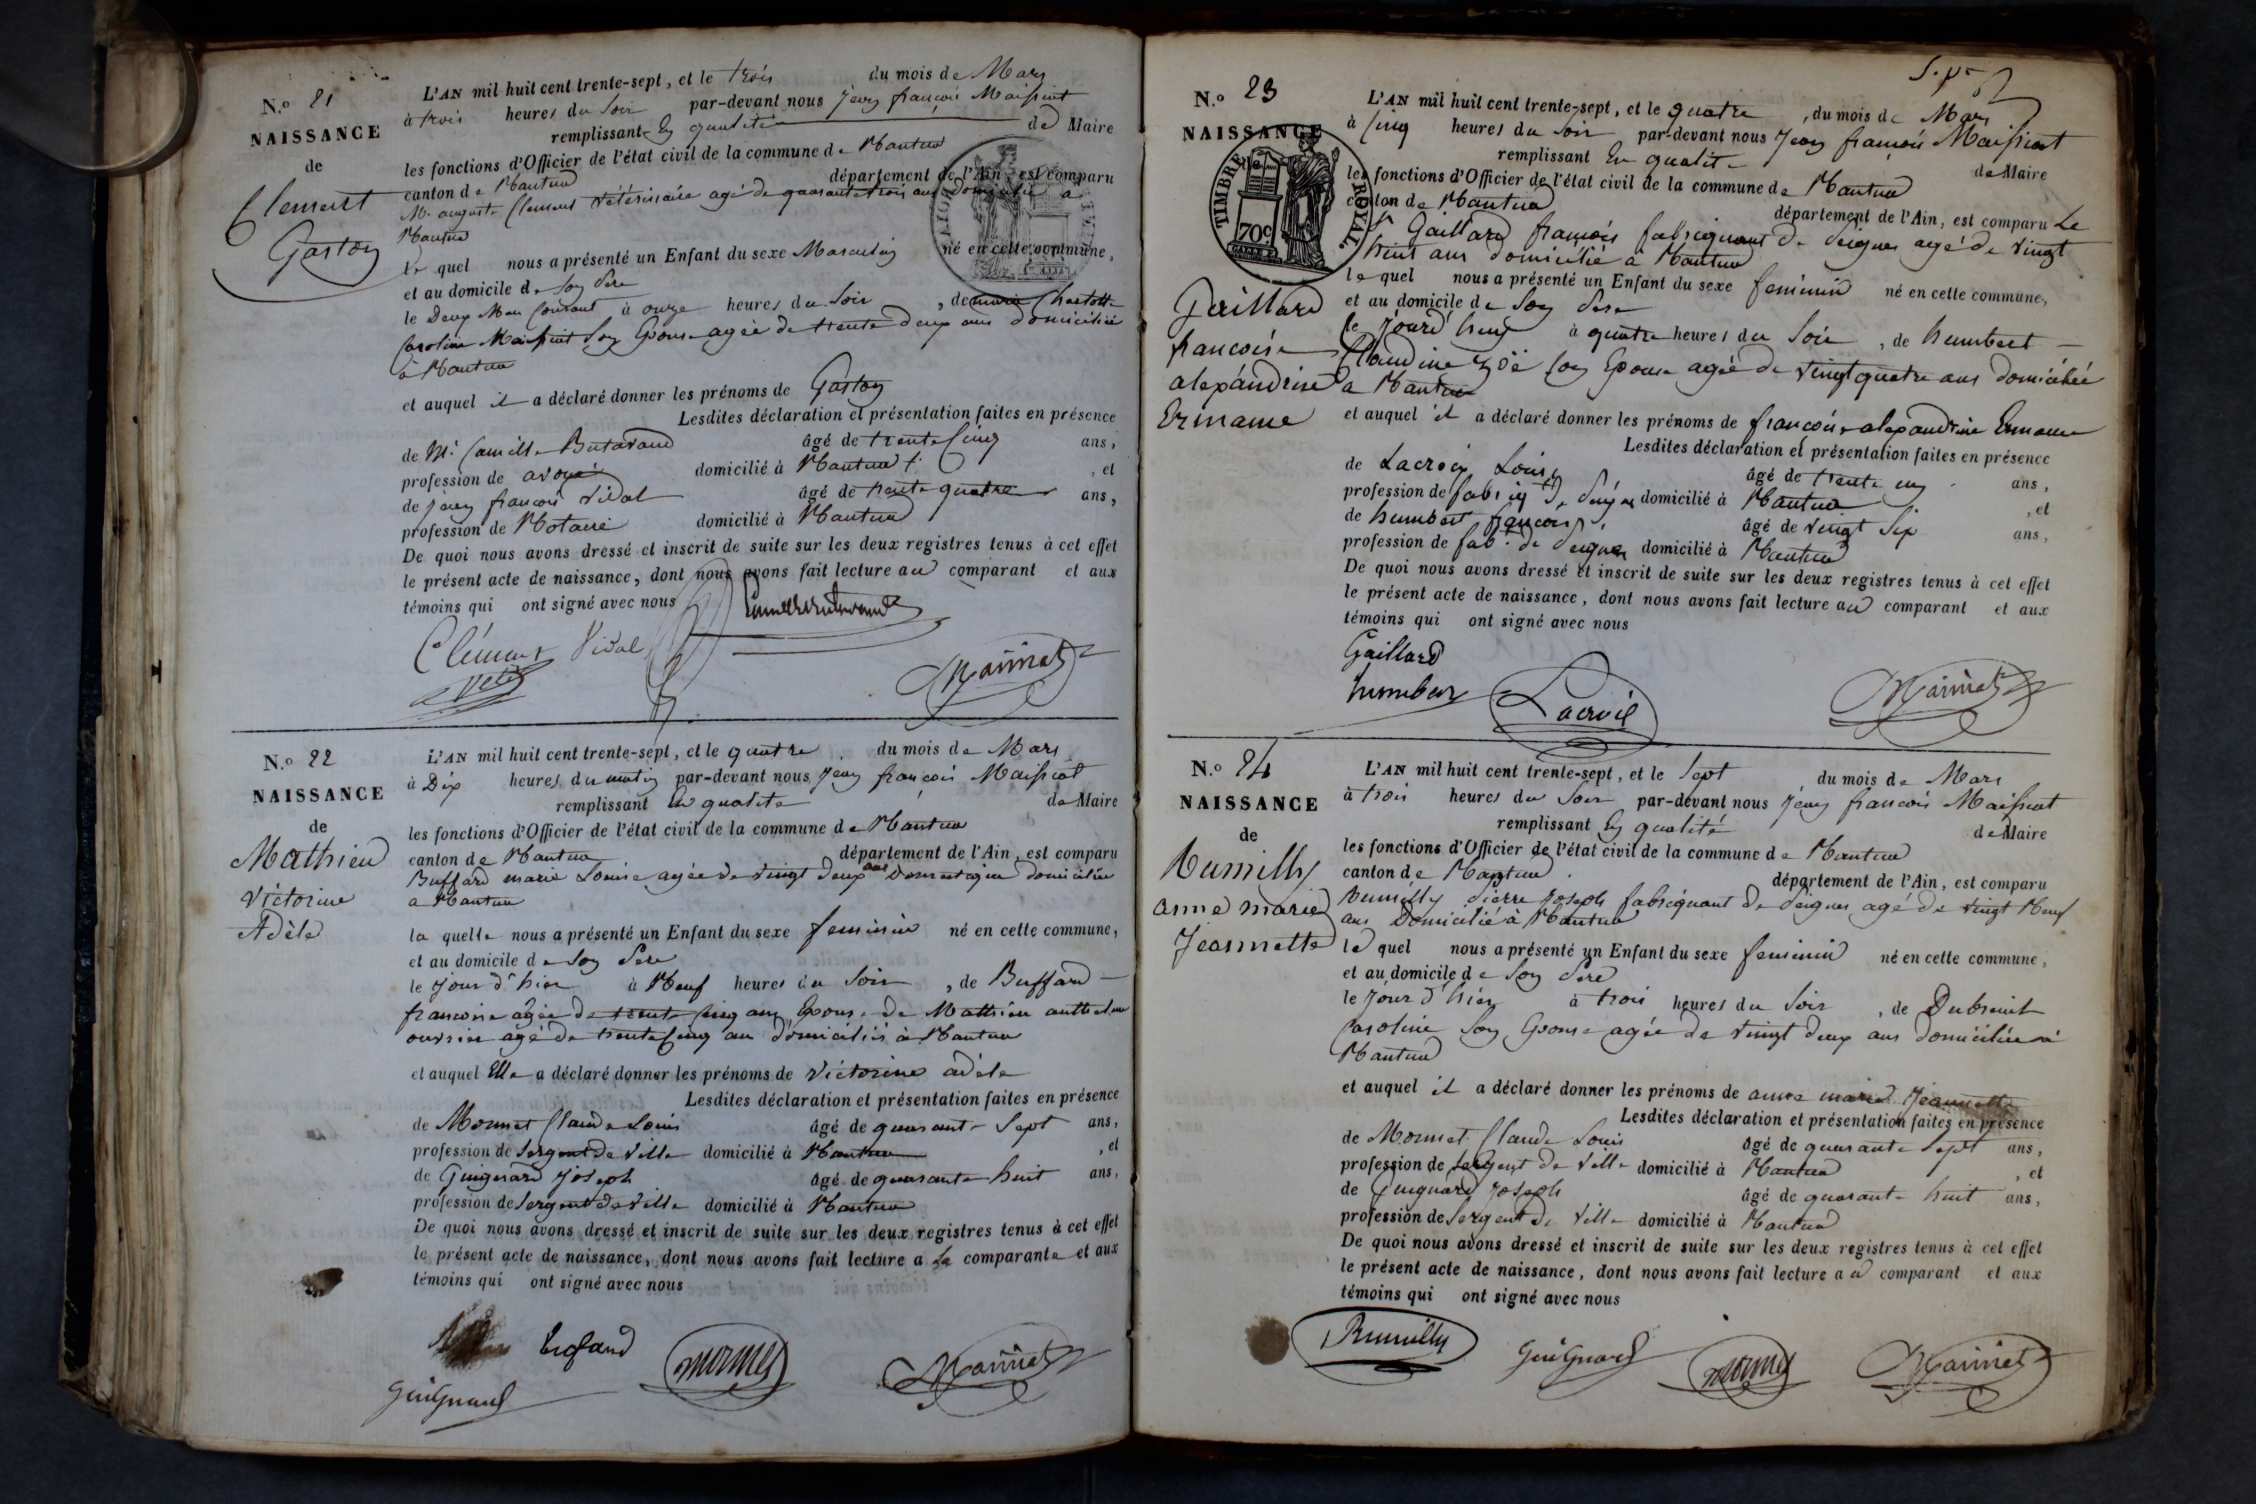 N.o 21
NAISSANCE
de
Clement
Gaston
L'AN mil huit cent trente-sept, et le trois du mois de Mars
à trois heures du Soir par-devant nous Jean françois Maissiat
remplissant En qualité de Maire
les fonctions d'Officier de l'état civil de la commune de Nantua
canton de Nantua département de l'Ain, est comparu
Mr auguste Clement Vétérinaire agé de quarante trois ans domicilié a
Nantua
le quel nous a présenté un Enfant du sexe Masculin né en cette commune,
et au domicile de Son Père
le Deux Mars Courant à onze heures du Soir, de marie Charlotte
Caroline Maissiat Son Epouse agée de trente deux ans domiciliée
à Nantua
et auquel il a déclaré donner les prénoms de Gaston
Lesdites déclaration et présentation faites en présence
de Mr Camille Butavand âgé de trente Cinq ans,
profession de avoué domicilié à Nantua, et
de jean françois Vidal âgé de trente quatre ans,
profession de Notaire domicilié à Nantua
De quoi nous avons dressé et inscrit de suite sur les deux registres tenus à cet effet
le présent acte de naissance, dont nous avons fait lecture au comparant et aux
témoins qui ont signé avec nous
Clément Vidal
Vété
Maissiat
N.o 22
NAISSANCE
de
Mathieu
Victorine
Adèle
L'AN mil huit cent trente-sept, et le quatre du mois de Mars
à Dix heures du matin par-devant nous Jean françois Maissiat
remplissant En qualité de Maire
les fonctions d'Officier de l'état civil de la commune de Nantua
canton de Nantua département de l'Ain, est comparu
Buffard marie Louise agée de vingt deux ans Domestique domiciliée
a Nantua
la quelle nous a présenté un Enfant du sexe feminin né en cette commune,
et au domicile de Son Père
le jour d'hier à Neuf heures du Soir, de Buffard
francoise agée de trente Cinq ans Epouse de Mathieu anthelme
ouvrier agé de trente Cinq ans domiciliés à Nantua
et auquel Elle a déclaré donner les prénoms de Victorine adèle
Lesdites déclaration et présentation faites en présence
de Monnet Claude Louis âgé de quarante Sept ans,
profession de Sergent de Ville domicilié à Nantua, et
de Guignard Joseph âgé de quarante huit ans,
profession de Sergent de Ville domicilié à Nantua
De quoi nous avons dressé et inscrit de suite sur les deux registres tenus à cet effet
le présent acte de naissance, dont nous avons fait lecture a La comparante et aux
témoins qui ont signé avec nous
Monnet Maissiat
Guignard
N.o 23
NAISSANCE
TIMBRE ROYAL
70c
Gaillard
francoise
alexandrine
Ermance
L'AN mil huit cent trente-sept, et le quatre, du mois de Mars
à Cinq heures du Soir par-devant nous Jean françois Maissiat
remplissant En qualité de Maire
les fonctions d'Officier de l'état civil de la commune de Nantua
canton de Nantua département de l'Ain, est comparu Le
Sr Gaillard francois fabriquant de Peignes agé de vingt
huit ans domicilié à Nantua
le quel nous a présenté un Enfant du sexe feminin né en cette commune,
et au domicile de Son Père
le jourd'huy à quatre heures du Soir, de humbert
Claudine Zoë Son Epouse agée de vingt quatre ans domiciliée
a Nantua
et auquel il a déclaré donner les prénoms de francoise alexandrine Ermance
Lesdites déclaration et présentation faites en présence
de Lacroix Louis âgé de trente un ans,
profession de fabriqt de Peignes domicilié à Nantua, et
de humbert francois âgé de vingt Six ans,
profession de fabt de Peignes domicilié à Nantua
De quoi nous avons dressé et inscrit de suite sur les deux registres tenus à cet effet
le présent acte de naissance, dont nous avons fait lecture au comparant et aux
témoins qui ont signé avec nous
Gaillard
humbert Lacroix Maissiat
N.o 24
NAISSANCE
de
Rumilly
anne marie
Jeannette
L'AN mil huit cent trente-sept, et le Sept du mois de Mars
à trois heures du Soir par-devant nous Jean francois Maissiat
remplissant En qualité de Maire
les fonctions d'Officier de l'état civil de la commune de Nantua
canton de Nantua département de l'Ain, est comparu
Rumilly Pierre Joseph fabriquant de Peignes agé de vingt Neuf
ans Domicilié à Nantua
le quel nous a présenté un Enfant du sexe feminin né en cette commune,
et au domicile de Son Père
le jour d'hier à trois heures du Soir, de Dubreuil
Caroline Son Epouse agée de vingt deux ans domiciliée à
Nantua
et auquel il a déclaré donner les prénoms de anne marie Jeannette
Lesdites déclaration et présentation faites en présence
de Monnet Claude Louis âgé de quarante Sept ans,
profession de Sergent de Ville domicilié à Nantua, et
de Guignard Joseph âgé de quarante huit ans,
profession de Sergent de Ville domicilié à Nantua
De quoi nous avons dressé et inscrit de suite sur les deux registres tenus à cet effet
le présent acte de naissance, dont nous avons fait lecture au comparant et aux
témoins qui ont signé avec nous
Rumilly Guignard Monnet Maissiat